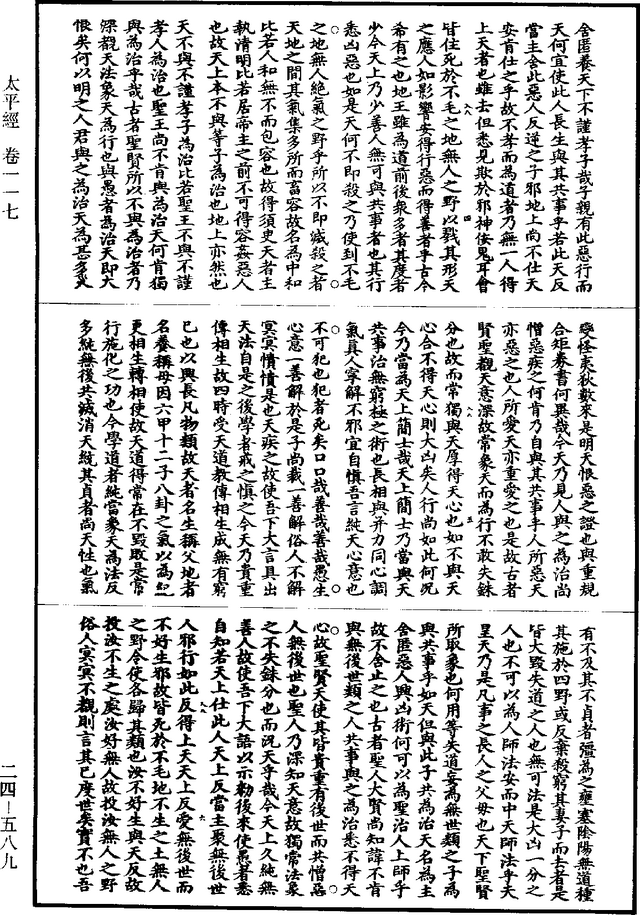 太平經 卷一一七
二四—五八九
舍匿養天下不謹孝子哉子親有此惡行而
天何宜使此人長生與其共事乎若此天反
當主舍此惡人反逆之子邪地上尚不仕天
安肯仕之乎故不孝而為道者乃無一人得
上天者也雖去但悉見欺於邪神佞鬼耳會
皆住死於不毛之地無人之野以戮其形天
之應人如影響安得行惡而得善者乎古今
希有之也地王雖為道前後衆多者其度者
少今天上乃少善人無可與共事者也其行
悉凶惡也如是天何不即殺之乃使到不毛
之地無人絶氣之野乎所以不即滅殺之者
天地之間其氣集多所而畜容故名為中和
比若人和無不而包容也故得須臾天者主
執清明比若居帝主之前不可得容姦惡人
也故天上本不與等子為治也地上亦然也
天不與不謹孝子為治比若聖王不與不謹
孝人為治也聖王尚不肯與為治天何肯獨
與為治乎哉古者聖賢所以不與為治者乃
深觀天法象天為行也與愚者為治天即大
恨矣何以明之人君與之為治天為惡多災
變怪夷狄數來是明天恨惡之證也與重規
合矩券書何異哉今天乃見人與之為治尚
憎惡疾之何肯乃自與其共事乎人所惡天
亦惡之也人所愛天亦重愛之也是故古者
賢聖觀天意深故常象天而為行不敢失銖
分也故而常獨與天厚得天心也如不與天
心合不得天心則大凶矣人行尚如此何況
今乃當為天上簡士哉天上簡士乃當與天
共事治無窮極之術也長相與并力同心調
氣真人寧解不邪宜自慎吾言純天心意也
不可犯也犯者死矣口口哉善哉善哉愚生
心意一善解於是子尚裁一善解俗人不解
冥冥憒憒是也天疾之故使吾下大言具出
天法自是之後學者戒之慎之今天乃貴重
傳相生故四時受天道教傳相生成無有窮
已也以興長凡物類故天者名生稱父地者
名養稱母因六甲十二子八卦之氣以為紀
更相生轉相使故天道得常在不毀敗是常
行施化之功也今學道者純當象天為法反
多純無後共滅消天統其貞者尚天性也氣
有不及其不貞者彊為之壅塞陰陽無道種
其施於四野或反棄殺窮其妻子而去者是
皆大毀失道之人也無可法是大凶一分之
人也不可以為人師法安而中天師法乎夫
皇天乃是凡事之長人之父母也天下聖賢
所取象也何用等失道妄為無世類之子為
與共事乎如天但與此子共為治天名為主
舍匿惡人興凶術何可以為聖治人上師乎
故不舍止之也古者聖人大賢尚知諱不肯
與無後世類之人共事與之為治悉不得天
心故聖賢天使其皆貴重有後世而共憎惡
人無後世也聖人乃深知天意故獨常法象
之不失銖分也而況天乎哉今天上久純無
善人故使吾下大語以示勑後來使愚者悉
自知若天上仕此人天上反當主聚無後世
人邪行如此反得上天天上反愛無後世而
不好生邪故皆死於不毛地不生之土無人
之野令使各歸其類也汝不好生與天反故
投汝不生之處汝好無人故投汝無人之野
俗人冥冥不觀則言其已度世矣實不也吾